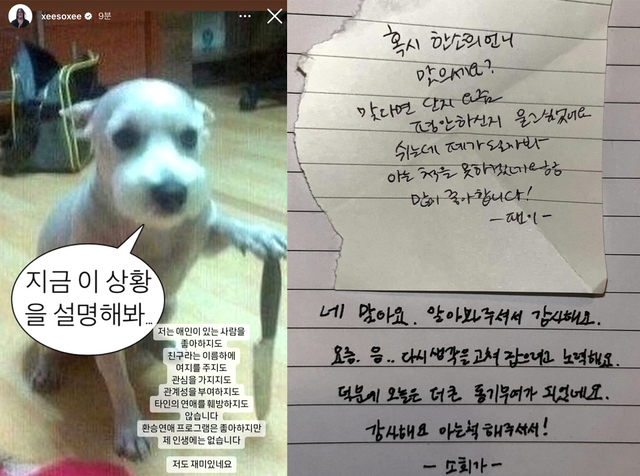 xeesoxee 9분
지금 이 상황
을 설명해봐...
저는 애인이 있는 사람을
좋아하지도
친구라는 이름하에
여지를 주지도
관심을 가지지도
관계성을 부여하지도
타인의 연애를 훼방하지도
않습니다
환승연애 프로그램은 좋아하지만
제 인생에는 없습니다
저도 재미있네요
혹시 한소희언니
맞으세요?
맞다면 단지 요즘
평안하신지 묻고싶었어요
쉬는데 폐가 될까봐
아는 척은 못하겠네요
많이 좋아합니다!
- 팬이 -
네 맞아요. 알아봐주셔서 감사해요.
요즘. 음.. 다시 생각을 고쳐 잡으려고 노력해요.
덕분에 오늘은 더 큰 동기부여가 되었네요.
감사해요 아는척 해주셔서!
- 소희가 -